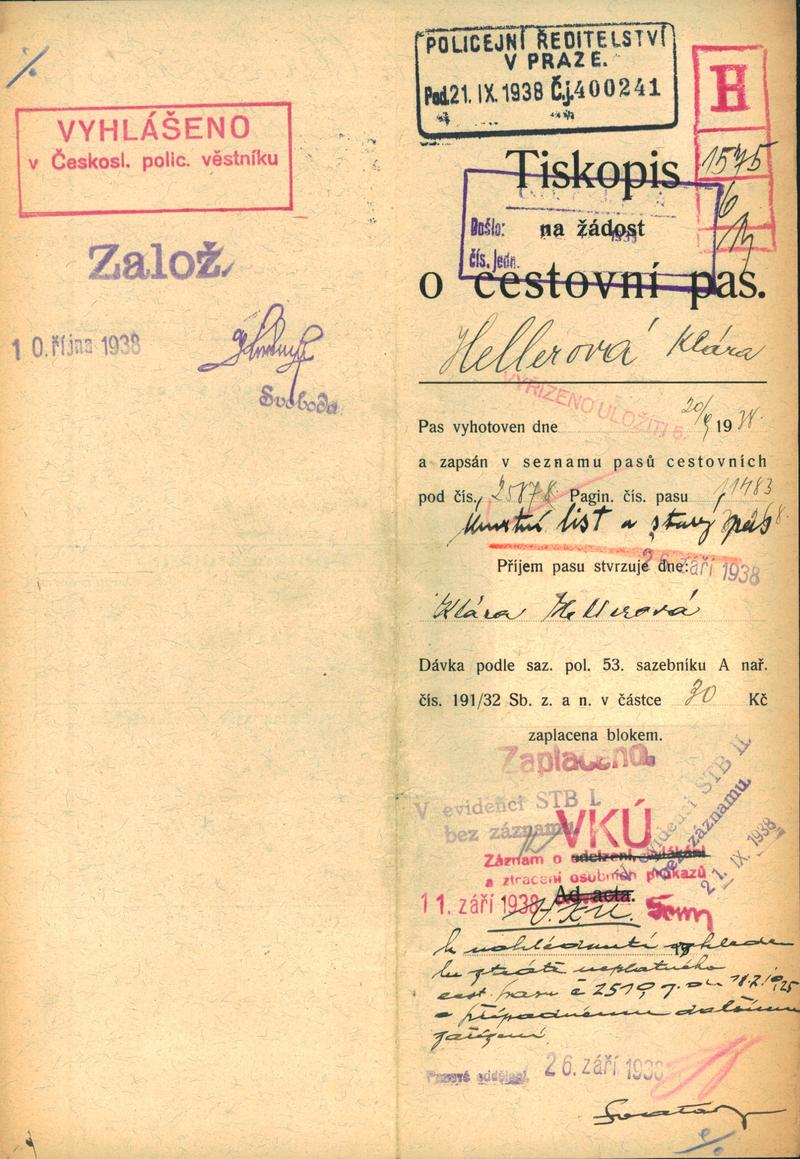 VYHLÁŠENO
v Českosl. polic. věstníku
Založ.
10. října 1938
Svoboda
POLICEJNÍ ŘEDITELSTVÍ
V PRAZE.
Pod. 21. IX. 1938 Č.j. 400241
H
1575
6
Tiskopis
Došlo:
na žádost
čís. jedn.
o cestovní pas.
Hellerová Klára
VYŘÍZENO ULOŽITI
Pas vyhotoven dne 20/9 1938.
a zapsán v seznamu pasů cestovních
pod čís. 25878 Pagin. čís. pasu 11483
list a starý pas
Příjem pasu stvrzuje dne:
26. září 1938
Klára Hellerová
Dávka podle saz. pol. 53. sazebníku A nař.
čís. 191/32 Sb. z. a n. v částce 30 Kč
zaplacena blokem.
Zaplaceno.
V evidenci STB I.
bez záznamu.
V evidenci STB II.
bez záznamu.
21. IX. 1938
VKÚ
Záznam o odcizení,
a ztracení osobních průkazů
11. září 1938
Ad acta.
V.K.U.
k nahlédnutí vzhledem
ku ztrátě neplatného
cest. pasu č 2519
a případnému dalšímu
zařízení.
Pasové oddělení,
26. září 1938